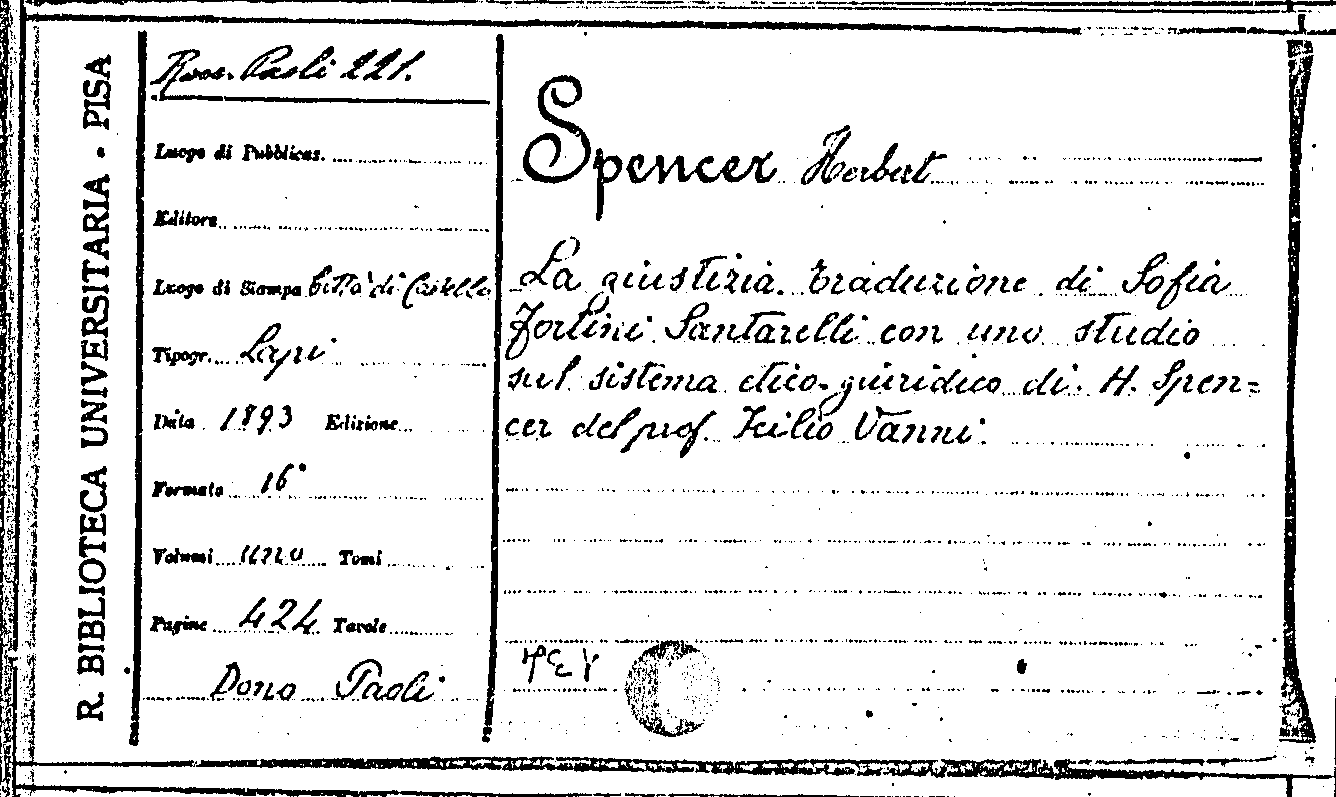 R. BIBLIOTECA UNIVERSITARIA - PISA
Racc. Paoli 221.
Luogo di Pubblicaz.
Editore
Luogo di Stampa Città di Castello
Tipogr. Lapi
Data 1893 Edizione
Formato 16°
Volumi uno Tomi
Pagine 424 Tavole
Dono Paoli
Spencer Herbert
La giustizia. Traduzione di Sofia
Fortini Santarelli con uno studio
sul sistema etico-giuridico di H. Spen=
cer del prof. Icilio Vanni.